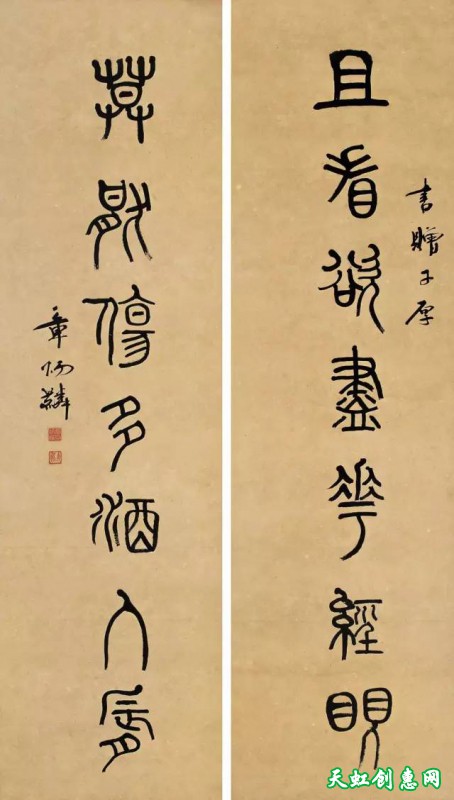 且看欲盡花經眼
書贈子厚
莫猒傷多酒入脣
章炳麟
天虹创惠网